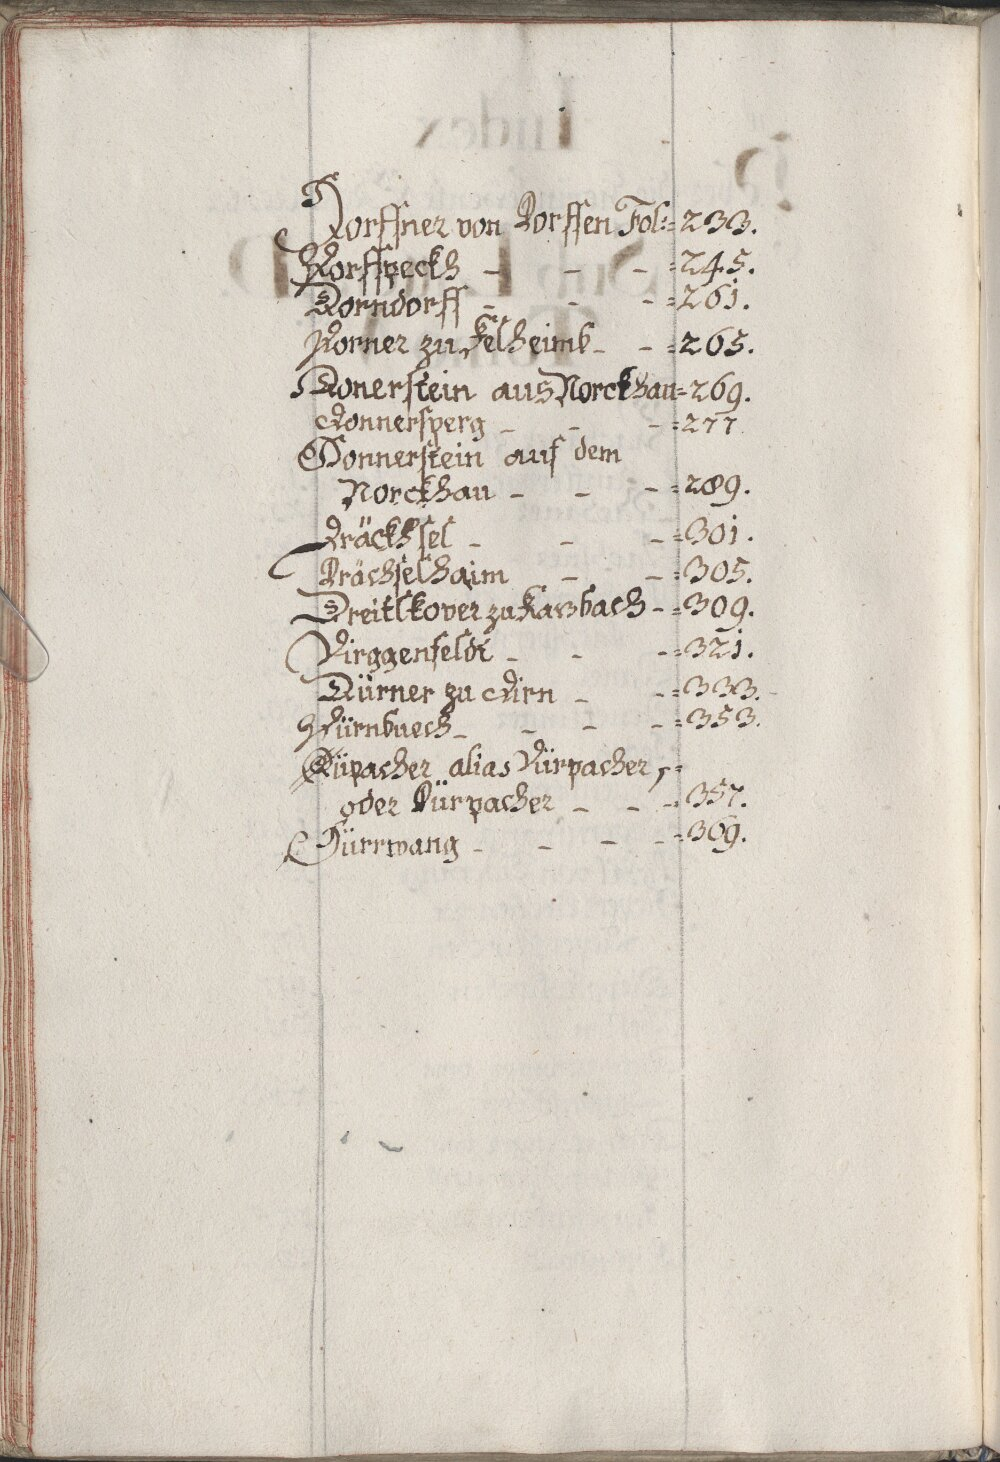 Dorffner von Dorffen Fol: = 233.
Dorffpeckh - - - = 245.
Dorndorff - - - = 261.
Dorner zu Kelheimb - - = 265.
Donerstein aus Norckhau = 269.
Donnersperg - - - = 277
Donnerstein auf dem
Norckhau - - - = 289.
Dräckhsel - - - = 301.
Drächselhaim - - = 305.
Dreitlkover zu Karbach - = 309.
Dirggenfeldt - - - = 321.
Dürner zu Dirn - - = 333.
Dürnbuech - - - - = 353.
Düpacher alias Dürpacher, =
oder Dürpacher - - - = 357.
Dürrwang - - - - = 369.